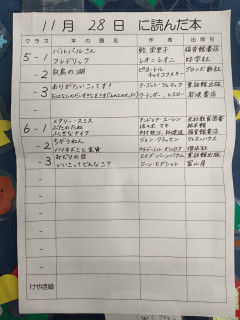 11月 28日 に読んだ本
クラス 本の題名 作者 出版社
5-1 バルバルさん 乾 栄里子 福音館書店
フレデリック レオ・レオニ 好学社
-2 白鳥の湖 ピョートル・チャイコフスキー ブロンズ新社
-3 ありがたいこってす! マーゴット・ツェマック 童話館出版
岩波書店
6-1 メアリー・スミス アンドレア・ユーレン 光村教育図書
ぶたのたね 佐々木マキ 絵本館
ふしぎなナイフ 福音館書店
-2 ちがうねん ジョン・クラッセン クレヨンハウス
ハリネズミと金貨 ウラジーミル・オルロフ 偕成社
-3 童話館出版
いいこってどんなこ? ジーン・モデシット 冨山房
-
-
-
-
けやき級